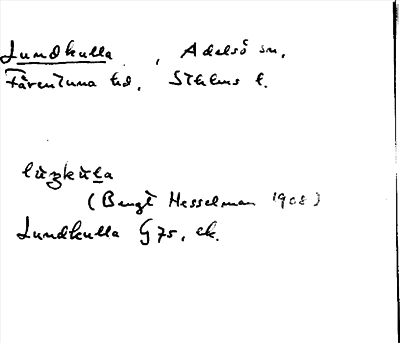 Lundkulla, Adelsö sn,
Färentuna hd, Sthlms l.
(Bengt Hesselman 1908)
Lundkulla G 75, ek.